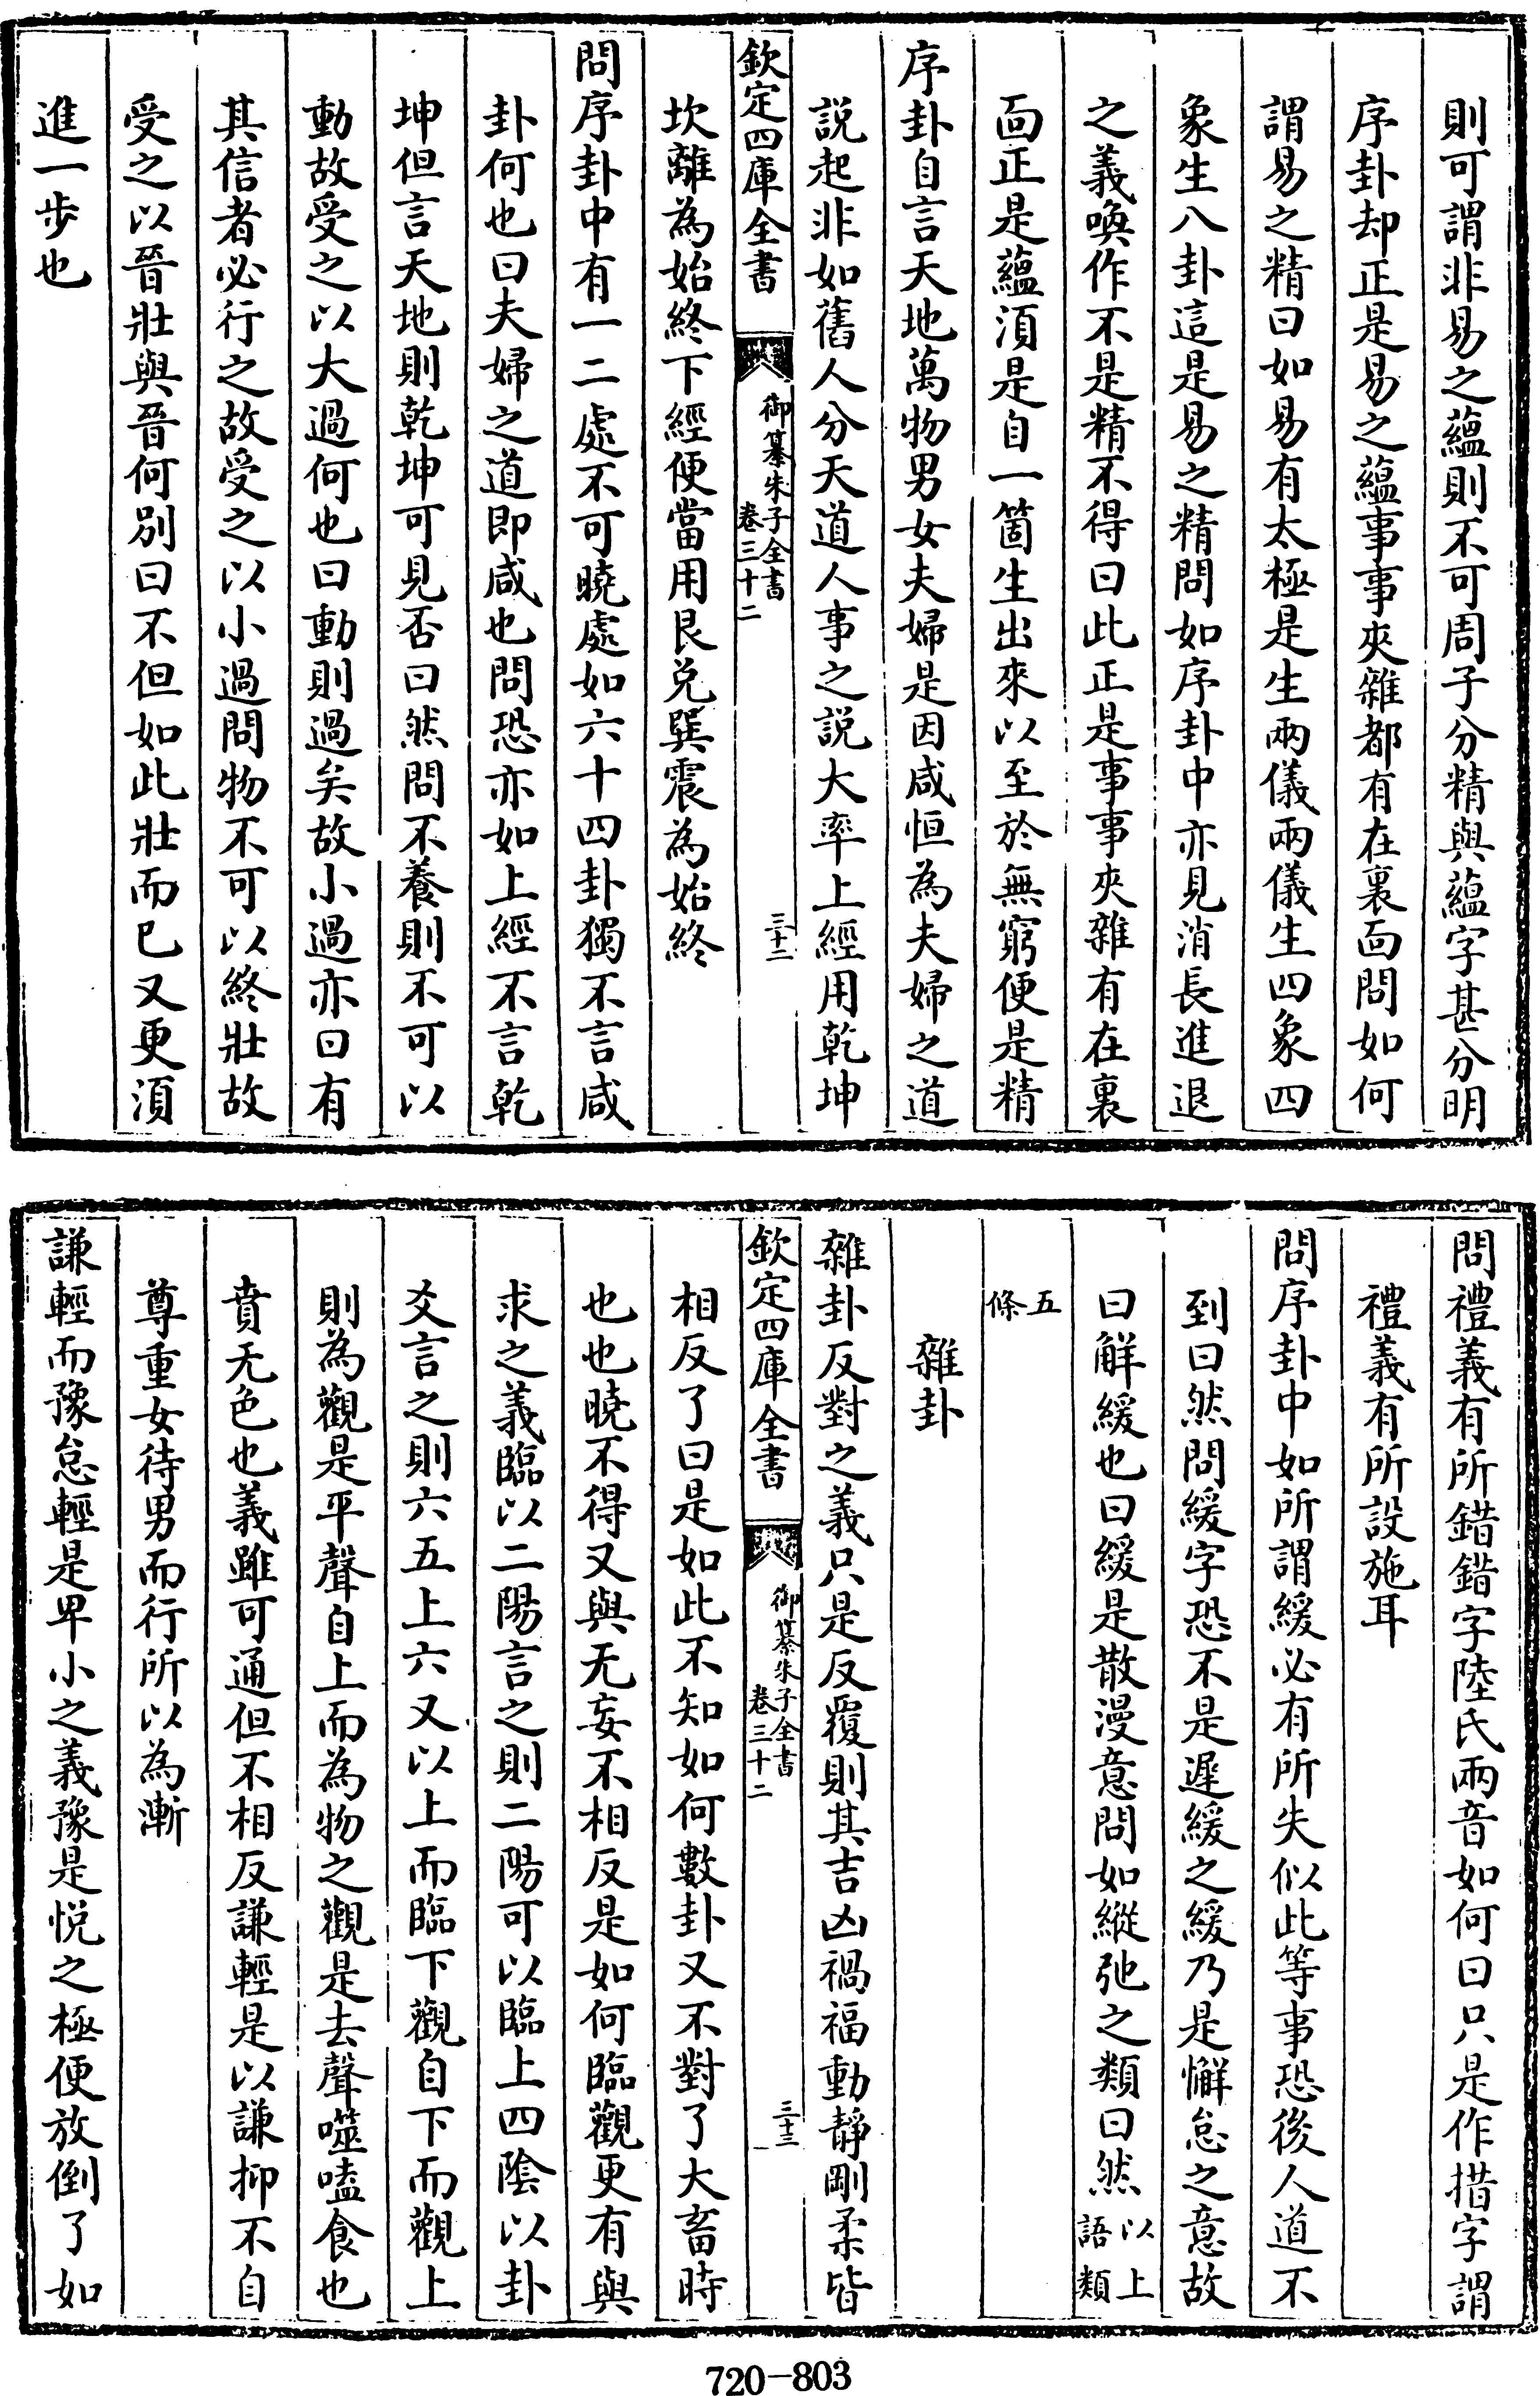 則可謂非易之蘊則不可周子分精與蘊字甚分明
序卦却正是易之蘊事事夾雜都有在裏面問如何
謂易之精曰如易有太極是生兩儀兩儀生四象四
象生八卦這是易之精問如序卦中亦見消長進退
之義喚作不是精不得曰此正是事事夾雜有在裏
面正是蘊須是自一箇生出來以至於無窮便是精
序卦自言天地萬物男女夫婦是因咸恒為夫婦之道
説起非如舊人分天道人事之説大率上經用乾坤
欽定四庫全書
御纂朱子全書
卷三十二
三十二
坎離為始終下經便當用艮兑巽震為始終
問序卦中有一二處不可曉處如六十四卦獨不言咸
卦何也曰夫婦之道即咸也問恐亦如上經不言乾
坤但言天地則乾坤可見否曰然問不養則不可以
動故受之以大過何也曰動則過矣故小過亦曰有
其信者必行之故受之以小過問物不可以終壯故
受之以晉壯與晉何別曰不但如此壯而已又更須
進一步也
問禮義有所錯錯字陸氏兩音如何曰只是作措字謂
禮義有所設施耳
問序卦中如所謂緩必有所失似此等事恐後人道不
到曰然問緩字恐不是遲緩之緩乃是懈怠之意故
曰解緩也曰緩是散漫意問如縱弛之類曰然以上
語類
五
條
雜卦
雜卦反對之義只是反覆則其吉凶禍福動靜剛柔皆
欽定四庫全書
御纂朱子全書
卷三十二
三十三
相反了曰是如此不知如何數卦又不對了大畜時
也也曉不得又與无妄不相反是如何臨觀更有與
求之義臨以二陽言之則二陽可以臨上四陰以卦
爻言之則六五上六又以上而臨下觀自下而觀上
則為觀是平聲自上而為物之觀是去聲噬嗑食也
賁无色也義雖可通但不相反謙輕是以謙抑不自
尊重女待男而行所以為漸
謙輕而豫怠輕是卑小之義豫是悦之極便放倒了如
720-803